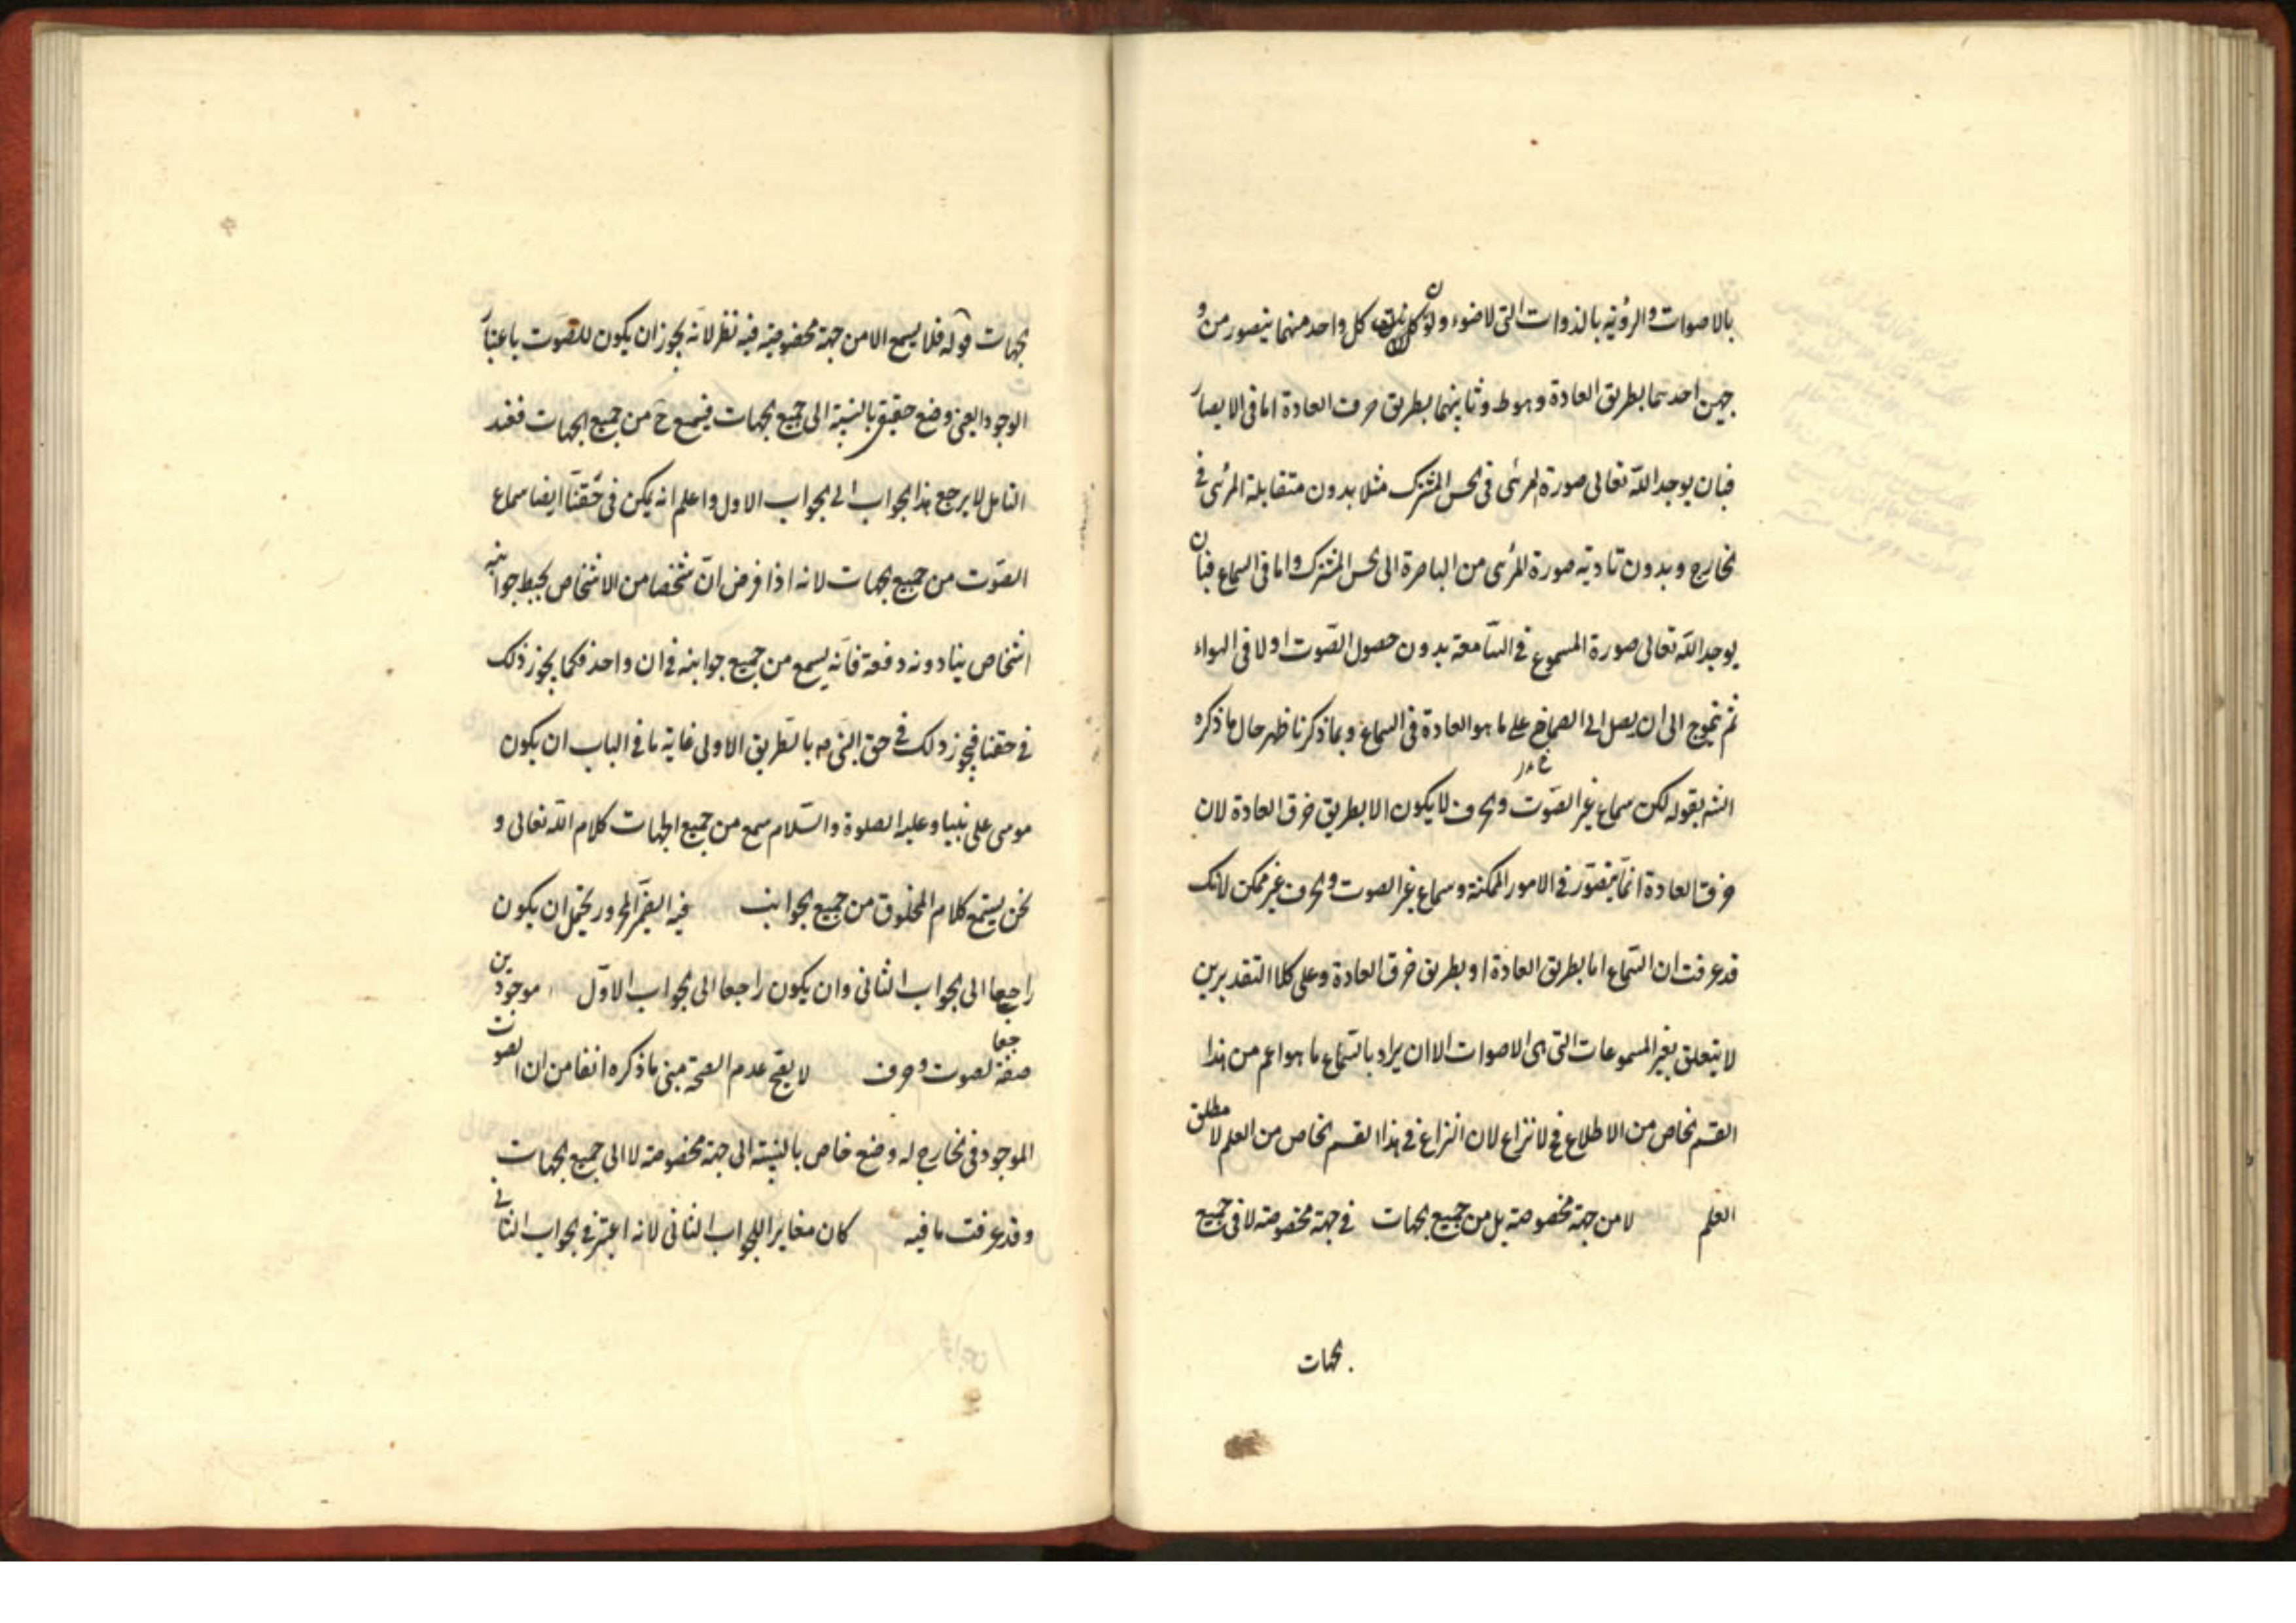 بالاصوات والرؤية بالذوات التى لاضوء ولون كل واحد منهما يتصور من و
جهين احدهما بطريق العادة وهو ط وثانيهما بطريق خرق العادة اما فى الابصار
فبان يوجد الله تعالى صورة المرئى فى الحس المشترك مثلا بدون متقابلة المرئى فى
الخارج وبدون تادية صورة المرئى من الباصرة الى الحس المشترك واما فى السماع فبان
يوجد الله تعالى صورة المسموع فى السامعة بدون حصول الصوت اولا فى الهواء
ثم تموج الى ان يصل الى الصماخ على ما هو العادة فى السماع وبما ذكرنا ظهر حال ما ذكره
الش بقوله لكن سماع غير الصوت والحرف لا يكون الا بطريق خرق العادة لان
خرق العادة انما يتصور فى الامور الممكنة وسماع غير الصوت والحرف غير ممكن لانك
قد عرفت ان السماع اما بطريق العادة او بطريق خرق العادة وعلى كلا التقديرين
لا يتعلق بغير المسموعات التى هى الاصوات الا ان يراد بالسماع ما هو اعم من هذا
القسم الخاص من الاطلاع فح لا نزاع لان النزاع فى هذا القسم الخاص من العلم لا مطلق
العلم لا من جهة مخصوصة بل من جميع الجهات فى جهة مخصوصة لا فى جميع
الجهات
الجهات قوله فلا يسمع الا من جهة مخصوصة فيه نظر لانه يجوز ان يكون للصوت باعتبار
الوجود العينى وضع حقيقى بالنسبة الى جميع الجهات فيسمع ح من جميع الجهات فعند
التامل لا يرجع هذا الجواب الى الجواب الاول واعلم انه يمكن فى حقنا ايضا سماع
الصوت من جميع الجهات لانه اذا فرض ان شخصا من الاشخاص يحيط جوانبه
اشخاص ينادونه دفعة فانه يسمع من جميع جوانبه فى ان واحد فكما يجوز ذلك
فى حقنا فيجوز ذلك فى حق النبى م بالطريق الاولى غاية ما فى الباب ان يكون
موسى على نبينا وعليه الصلوة والسلام سمع من جميع الجهات كلام الله تعالى و
نحن يستمع كلام المخلوق من جميع الجوانب فيه الضمير المجرور يحتمل ان يكون
راجعا الى الجواب الثانى وان يكون راجعا الى الجواب الاول موجودين
صفة لصوت وحرف لا يقح عدم الصحة مبنى ما ذكره انفا من ان الصوت
الموجود فى الخارج له وضع خاص بالنسبة الى جهة مخصوصة لا الى جميع الجهات
وقد عرفت ما فيه كان مغايرا للجواب الثانى لانه اعتبر فى الجواب الثانى